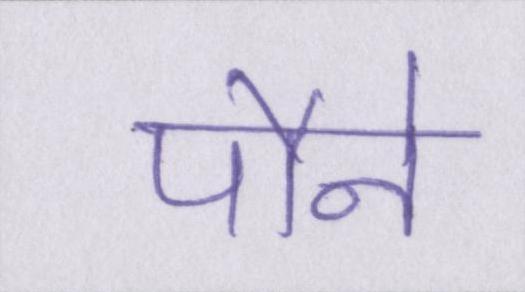 पौने